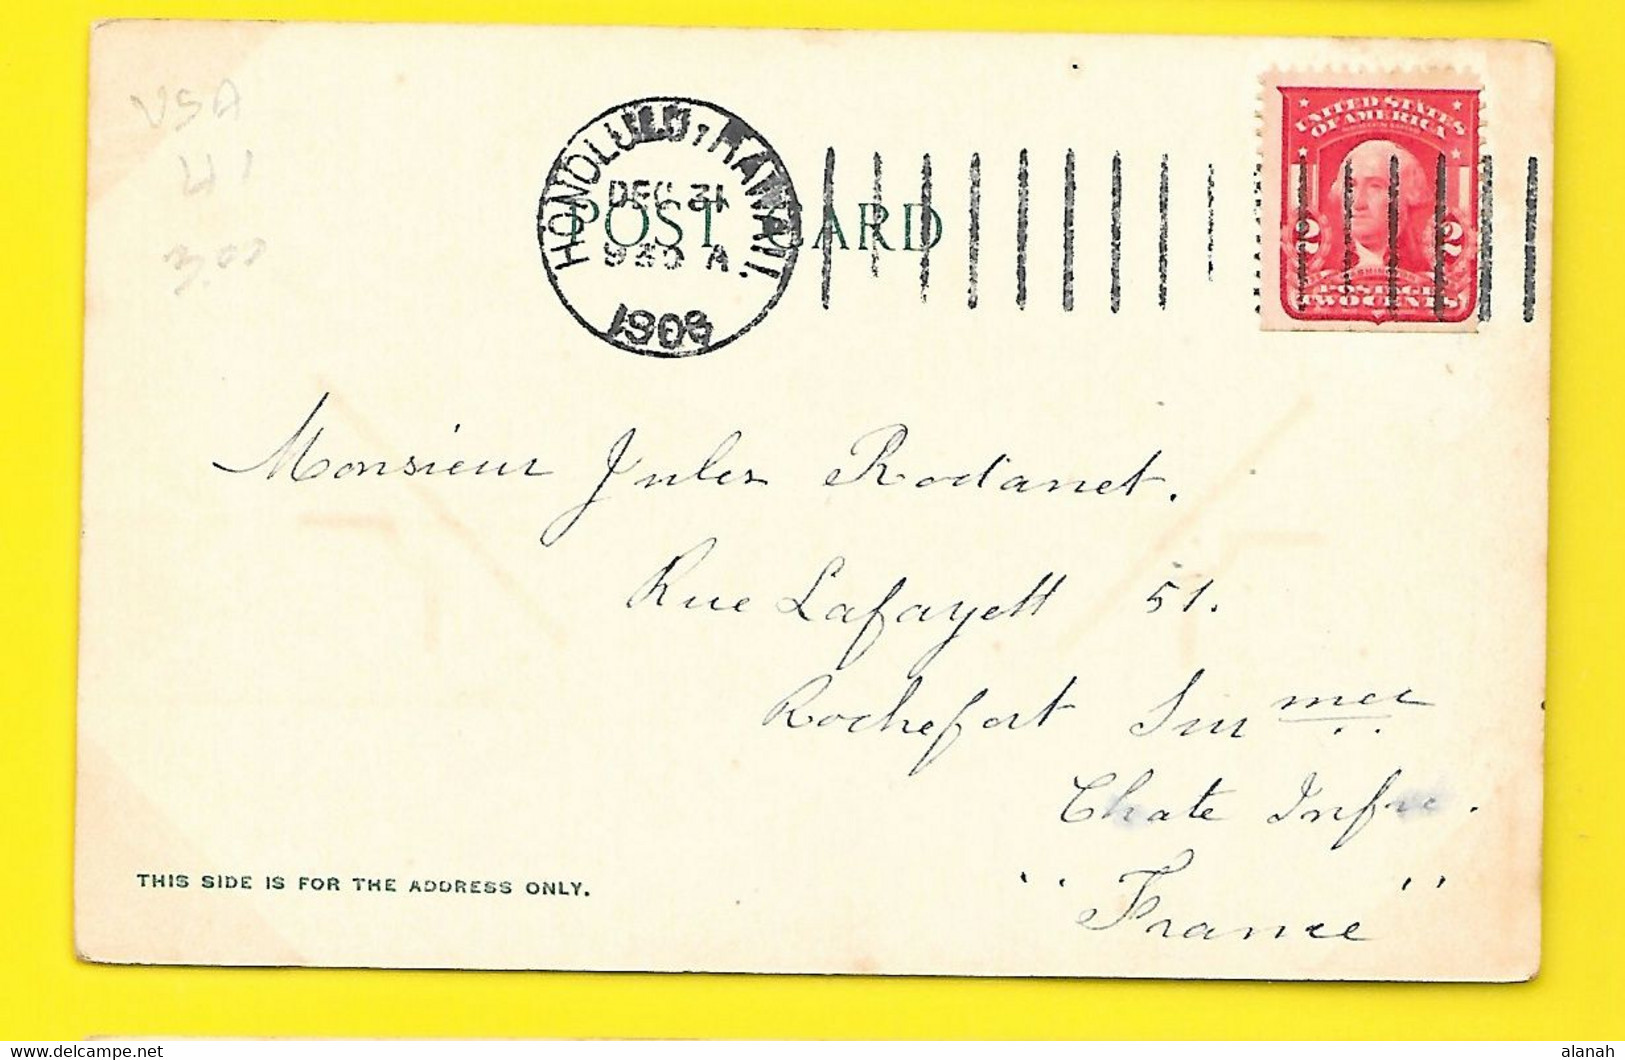 USA
3.00
HONOLULU, HAWAII.
DEC 31
9 30 A
POST CARD
UNITED STATES
OF AMERICA
2 2
POSTAGE
TWO CENTS
Monsieur Jules Rodanet.
Rue Lafayett 51.
Rochefort Sur mer
Chate Infre.
"France"
THIS SIDE IS FOR THE ADDRESS ONLY.
alanah